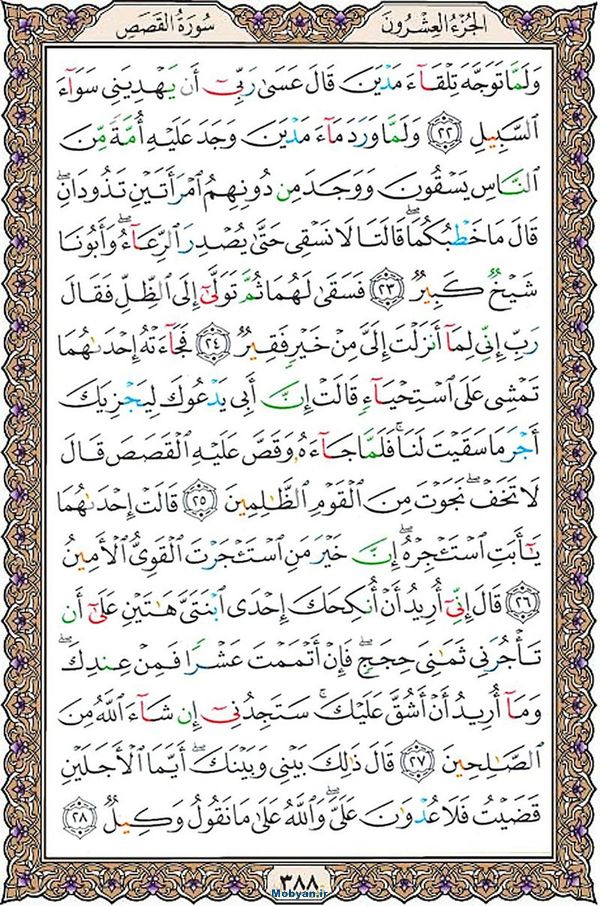 سُورَةُ القَصَصِ الجُزءُ العِشرُونَ
وَلَمَّا تَوَجَّهَ تِلۡقَآءَ مَدۡيَنَ قَالَ عَسَىٰ رَبِّيٓ أَن يَهۡدِيَنِي سَوَآءَ
ٱلسَّبِيلِ ٢٢ وَلَمَّا وَرَدَ مَآءَ مَدۡيَنَ وَجَدَ عَلَيۡهِ أُمَّةٗ مِّنَ
ٱلنَّاسِ يَسۡقُونَ وَوَجَدَ مِن دُونِهِمُ ٱمۡرَأَتَيۡنِ تَذُودَانِۖ
قَالَ مَا خَطۡبُكُمَاۖ قَالَتَا لَا نَسۡقِي حَتَّىٰ يُصۡدِرَ ٱلرِّعَآءُۖ وَأَبُونَا
شَيۡخٞ كَبِيرٞ ٢٣ فَسَقَىٰ لَهُمَا ثُمَّ تَوَلَّىٰٓ إِلَى ٱلظِّلِّ فَقَالَ
رَبِّ إِنِّي لِمَآ أَنزَلۡتَ إِلَيَّ مِنۡ خَيۡرٖ فَقِيرٞ ٢٤ فَجَآءَتۡهُ إِحۡدَىٰهُمَا
تَمۡشِي عَلَى ٱسۡتِحۡيَآءٖ قَالَتۡ إِنَّ أَبِي يَدۡعُوكَ لِيَجۡزِيَكَ
أَجۡرَ مَا سَقَيۡتَ لَنَاۚ فَلَمَّا جَآءَهُۥ وَقَصَّ عَلَيۡهِ ٱلۡقَصَصَ قَالَ
لَا تَخَفۡۖ نَجَوۡتَ مِنَ ٱلۡقَوۡمِ ٱلظَّٰلِمِينَ ٢٥ قَالَتۡ إِحۡدَىٰهُمَا
يَٰٓأَبَتِ ٱسۡتَـٔۡجِرۡهُۖ إِنَّ خَيۡرَ مَنِ ٱسۡتَـٔۡجَرۡتَ ٱلۡقَوِيُّ ٱلۡأَمِينُ
٢٦ قَالَ إِنِّيٓ أُرِيدُ أَنۡ أُنكِحَكَ إِحۡدَى ٱبۡنَتَيَّ هَٰتَيۡنِ عَلَىٰٓ أَن
تَأۡجُرَنِي ثَمَٰنِيَ حِجَجٖۖ فَإِنۡ أَتۡمَمۡتَ عَشۡرٗا فَمِنۡ عِندِكَۖ
وَمَآ أُرِيدُ أَنۡ أَشُقَّ عَلَيۡكَۚ سَتَجِدُنِيٓ إِن شَآءَ ٱللَّهُ مِنَ
ٱلصَّٰلِحِينَ ٢٧ قَالَ ذَٰلِكَ بَيۡنِي وَبَيۡنَكَۖ أَيَّمَا ٱلۡأَجَلَيۡنِ
قَضَيۡتُ فَلَا عُدۡوَٰنَ عَلَيَّۖ وَٱللَّهُ عَلَىٰ مَا نَقُولُ وَكِيلٞ ٢٨
٣٨٨
Mobyan.ir